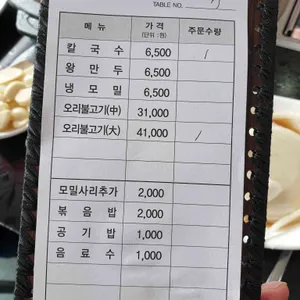 TABLE NO.
메 뉴 가 격 (단위 : 원) 주문수량
칼 국 수 6,500 /
왕 만 두 6,500
냉 모 밀 6,500
오리불고기(中) 31,000
오리불고기(大) 41,000 /
모밀사리추가 2,000
볶 음 밥 2,000
공 기 밥 1,000
음 료 수 1,000